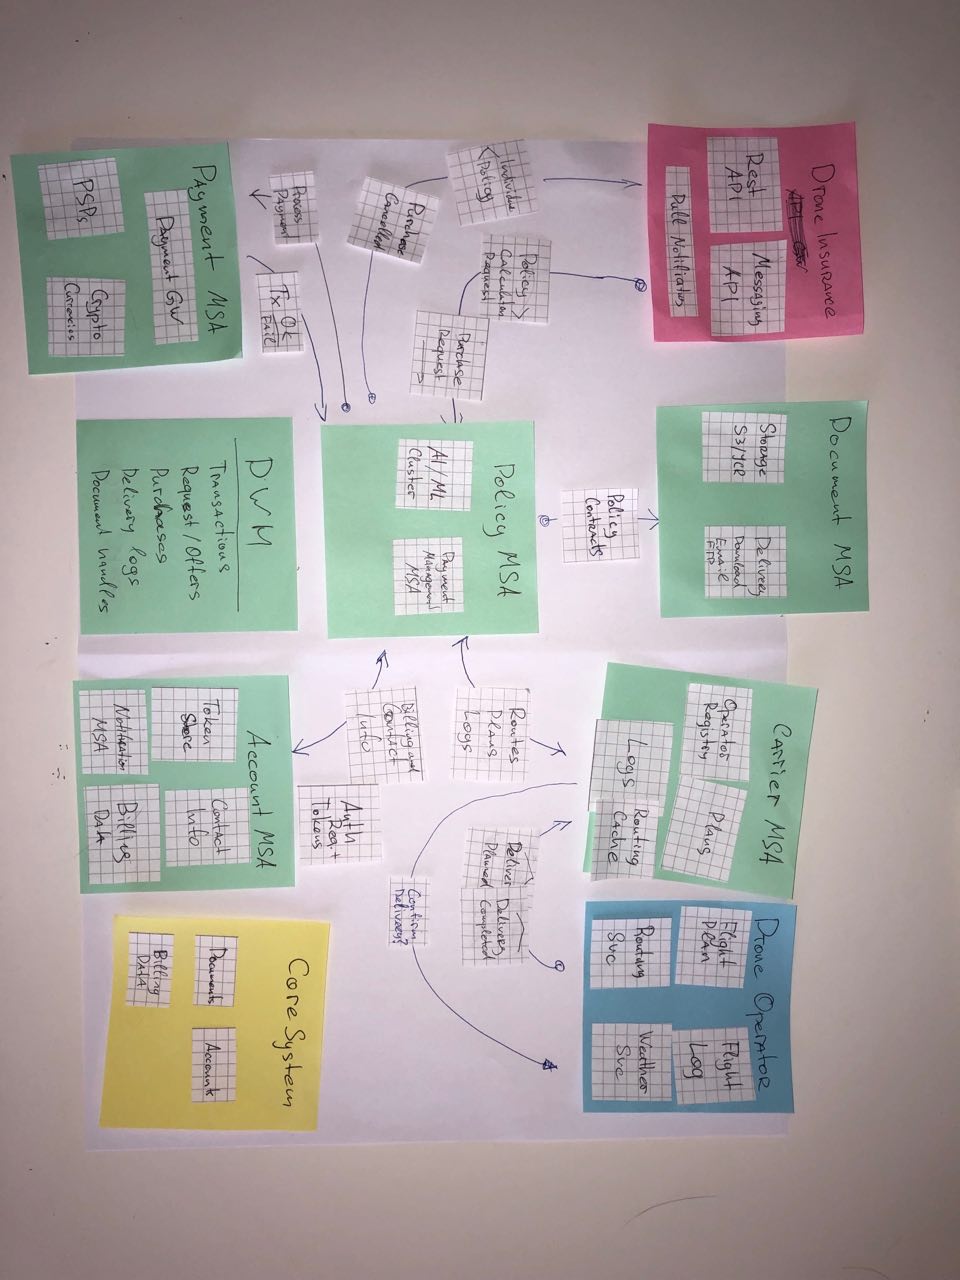 Drone Insurance
API GW
Rest
API
Messaging
API
Pull Notifiatios
Document MSA
Storage
S3/JCR
Delivery
Download
Email
FTP
Carrier MSA
Operator
Registry
Plans
Logs
Routing
Cache
Drone Operator
Flight
Plan
Flight
Log
Routing
Svc
Weather
Svc
Policy
Contracts
Individual
Policy
Policy
Calculation
Request
Purchase
Request
Purchase
Cancelled
Process
Payment
Tx Ok
Fail
Policy MSA
AI/ML
Cluster
Payment
Management
MSA
Routes
Plans
Logs
Deliver
Planned
Delivery
Completed
Confirm
Delivery?
Billing and
Contact
Info
Auth
Req.+
Tokens
Payment MSA
Payment GW
PSPs
Crypto
Currencies
DWM
Transactions
Request/Offers
Purchases
Delivery logs
Document handles
Account MSA
Token
Store
Contact
Info
Notification
MSA
Billing
Data
Core System
Documents
Accounts
Billing
Data